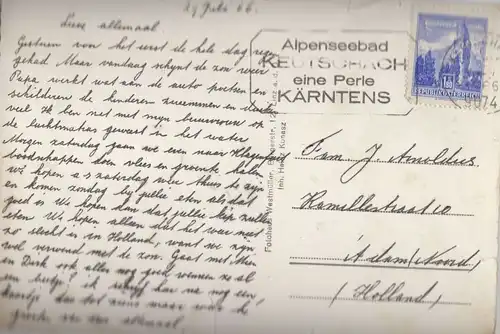 29 Juli 66.
Lieve allemaal
Gisteren voor het eerst de hele dag regen
gehad. Maar vandaag schijnt de zon weer
Papa werkt wat aan de auto poetsen en
schilderen de kinderen zwemmen en duiken
veel Ik ben net met mijn
de luchtmatras geweest in het water
Morgen zaterdag gaan we even naar Klagenfurt
boodschappen doen vlees en groente halen
We hopen a s zaterdag weer thuis te zijn
en komen zondag bij jullie eten als dat
goed is We hopen dan dat jullie kip zullen
eten We hopen alleen dat het weer niet
zo slecht is in Holland, want we zijn
wel verwend met de zon. Gaat met
en Dirk ook alles nog goed wennen ze al
een beetje? ik schrijf haar nog een
kaartje dus tot
groeten van ons allemaal
Alpenseebad
KEUTSCHACH
eine Perle
KÄRNTENS
REPUBLIK ÖSTERREICH
9074
Fam J Arnoldus
Kamillestraat 10
A'dam (Noord)
(Holland)
Foldhaus Westmüller,
Linz a. d.
Inh. Kunasz